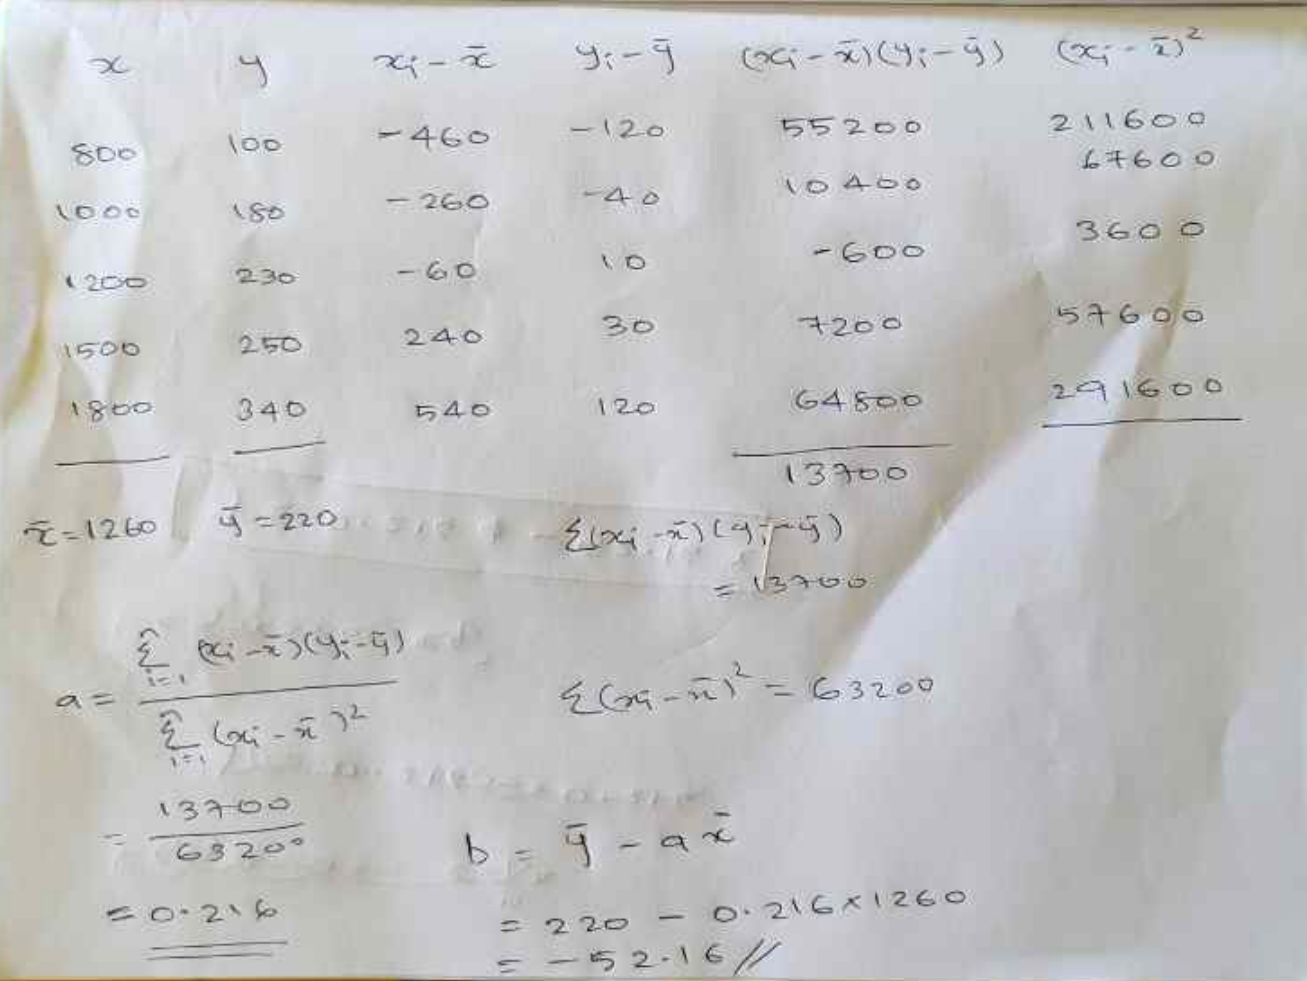 x y xi - x̄ yi - ȳ (xi - x̄)(yi - ȳ) (xi - x̄)²
800 100 -460 -120 55200 211600
1000 180 -260 -40 10400 67600
1200 230 -60 10 -600 3600
1500 250 240 30 7200 57600
1800 340 540 120 64800 291600
13700
x̄ = 1260 ȳ = 220 Σ(xi - x̄)(yi - ȳ)
= 13700
a = Σ(i=1 to n) (xi - x̄)(yi - ȳ) / Σ(i=1 to n) (xi - x̄)²
Σ(xi - x̄)² = 63200
= 13700 / 63200
= 0.216
b = ȳ - a x̄
= 220 - 0.216 × 1260
= -52.16 //